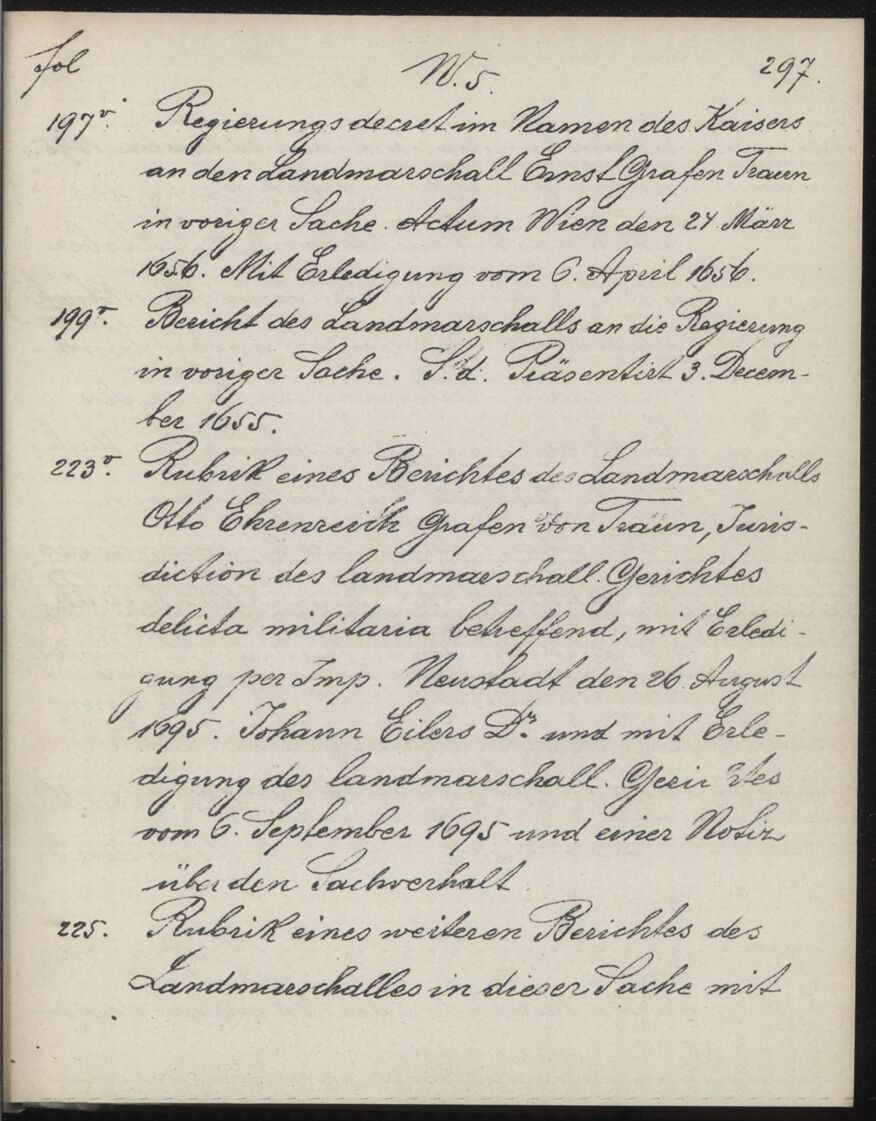 fol N. 5. 297.
197v. Regierungsdecret im Namen des Kaisers
an den Landmarschall Ernst Grafen Traun
in voriger Sache. Actum Wien den 24 März
1656. Mit Erledigung vom 6. April 1656.
199v. Bericht des Landmarschalls an die Regierung
in voriger Sache. S. d. Präsentirt 3. Decem-
ber 1655.
223v. Rubrik eines Berichtes des Landmarschalls
Otto Ehrenreich Grafen von Traun, Juris-
diction des landmarschall. Gerichtes
delicta militaria betreffend, mit Erledi-
gung per Imp. Neustadt den 26. August
1695. Johann Eilers Dr. und mit Erle-
digung des landmarschall. Gerichtes
vom 6. September 1695 und einer Notiz
über den Sachverhalt
225. Rubrik eines weiteren Berichtes des
Landmarschalles in dieser Sache mit